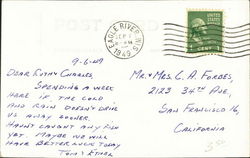 POST CARD
EAGLE RIVER, WIS.
SEP 7
PM
1949
UNITED STATES
1 CENT
9-6-49
DEAR RUTH & CHARLES,
SPENDING A WEEK
HERE IF THE COLD
AND RAIN DOESN'T DRIVE
US AWAY SOONER.
HAVEN'T CAUGHT ANY FISH
YET. MAYBE WE WILL
HAVE BETTER LUCK TODAY
TOM & ETHEL
MR. & MRS. C. A. FORBES,
2123 24TH AVE,
SAN FRANCISCO 16,
CALIFORNIA